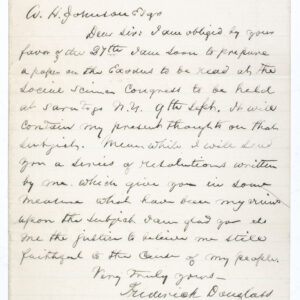 W. H. Johnson Esqr
Dear Sir: I am obliged by your
favor of the 27th I am soon to prepare
a paper on the Exodus to be read at the
Social Science Congress to be held
at Saratoga N.Y. 9th Sept. It will
contain my present thoughts on that
subject. Mean while I will send
you a series of resolutions written
by me, which give you in some
measure what have been my views
upon the subject. I am glad you do
me the justice to believe me still
faithful to the Cause of my people.
Very truly yours
Frederick Douglass